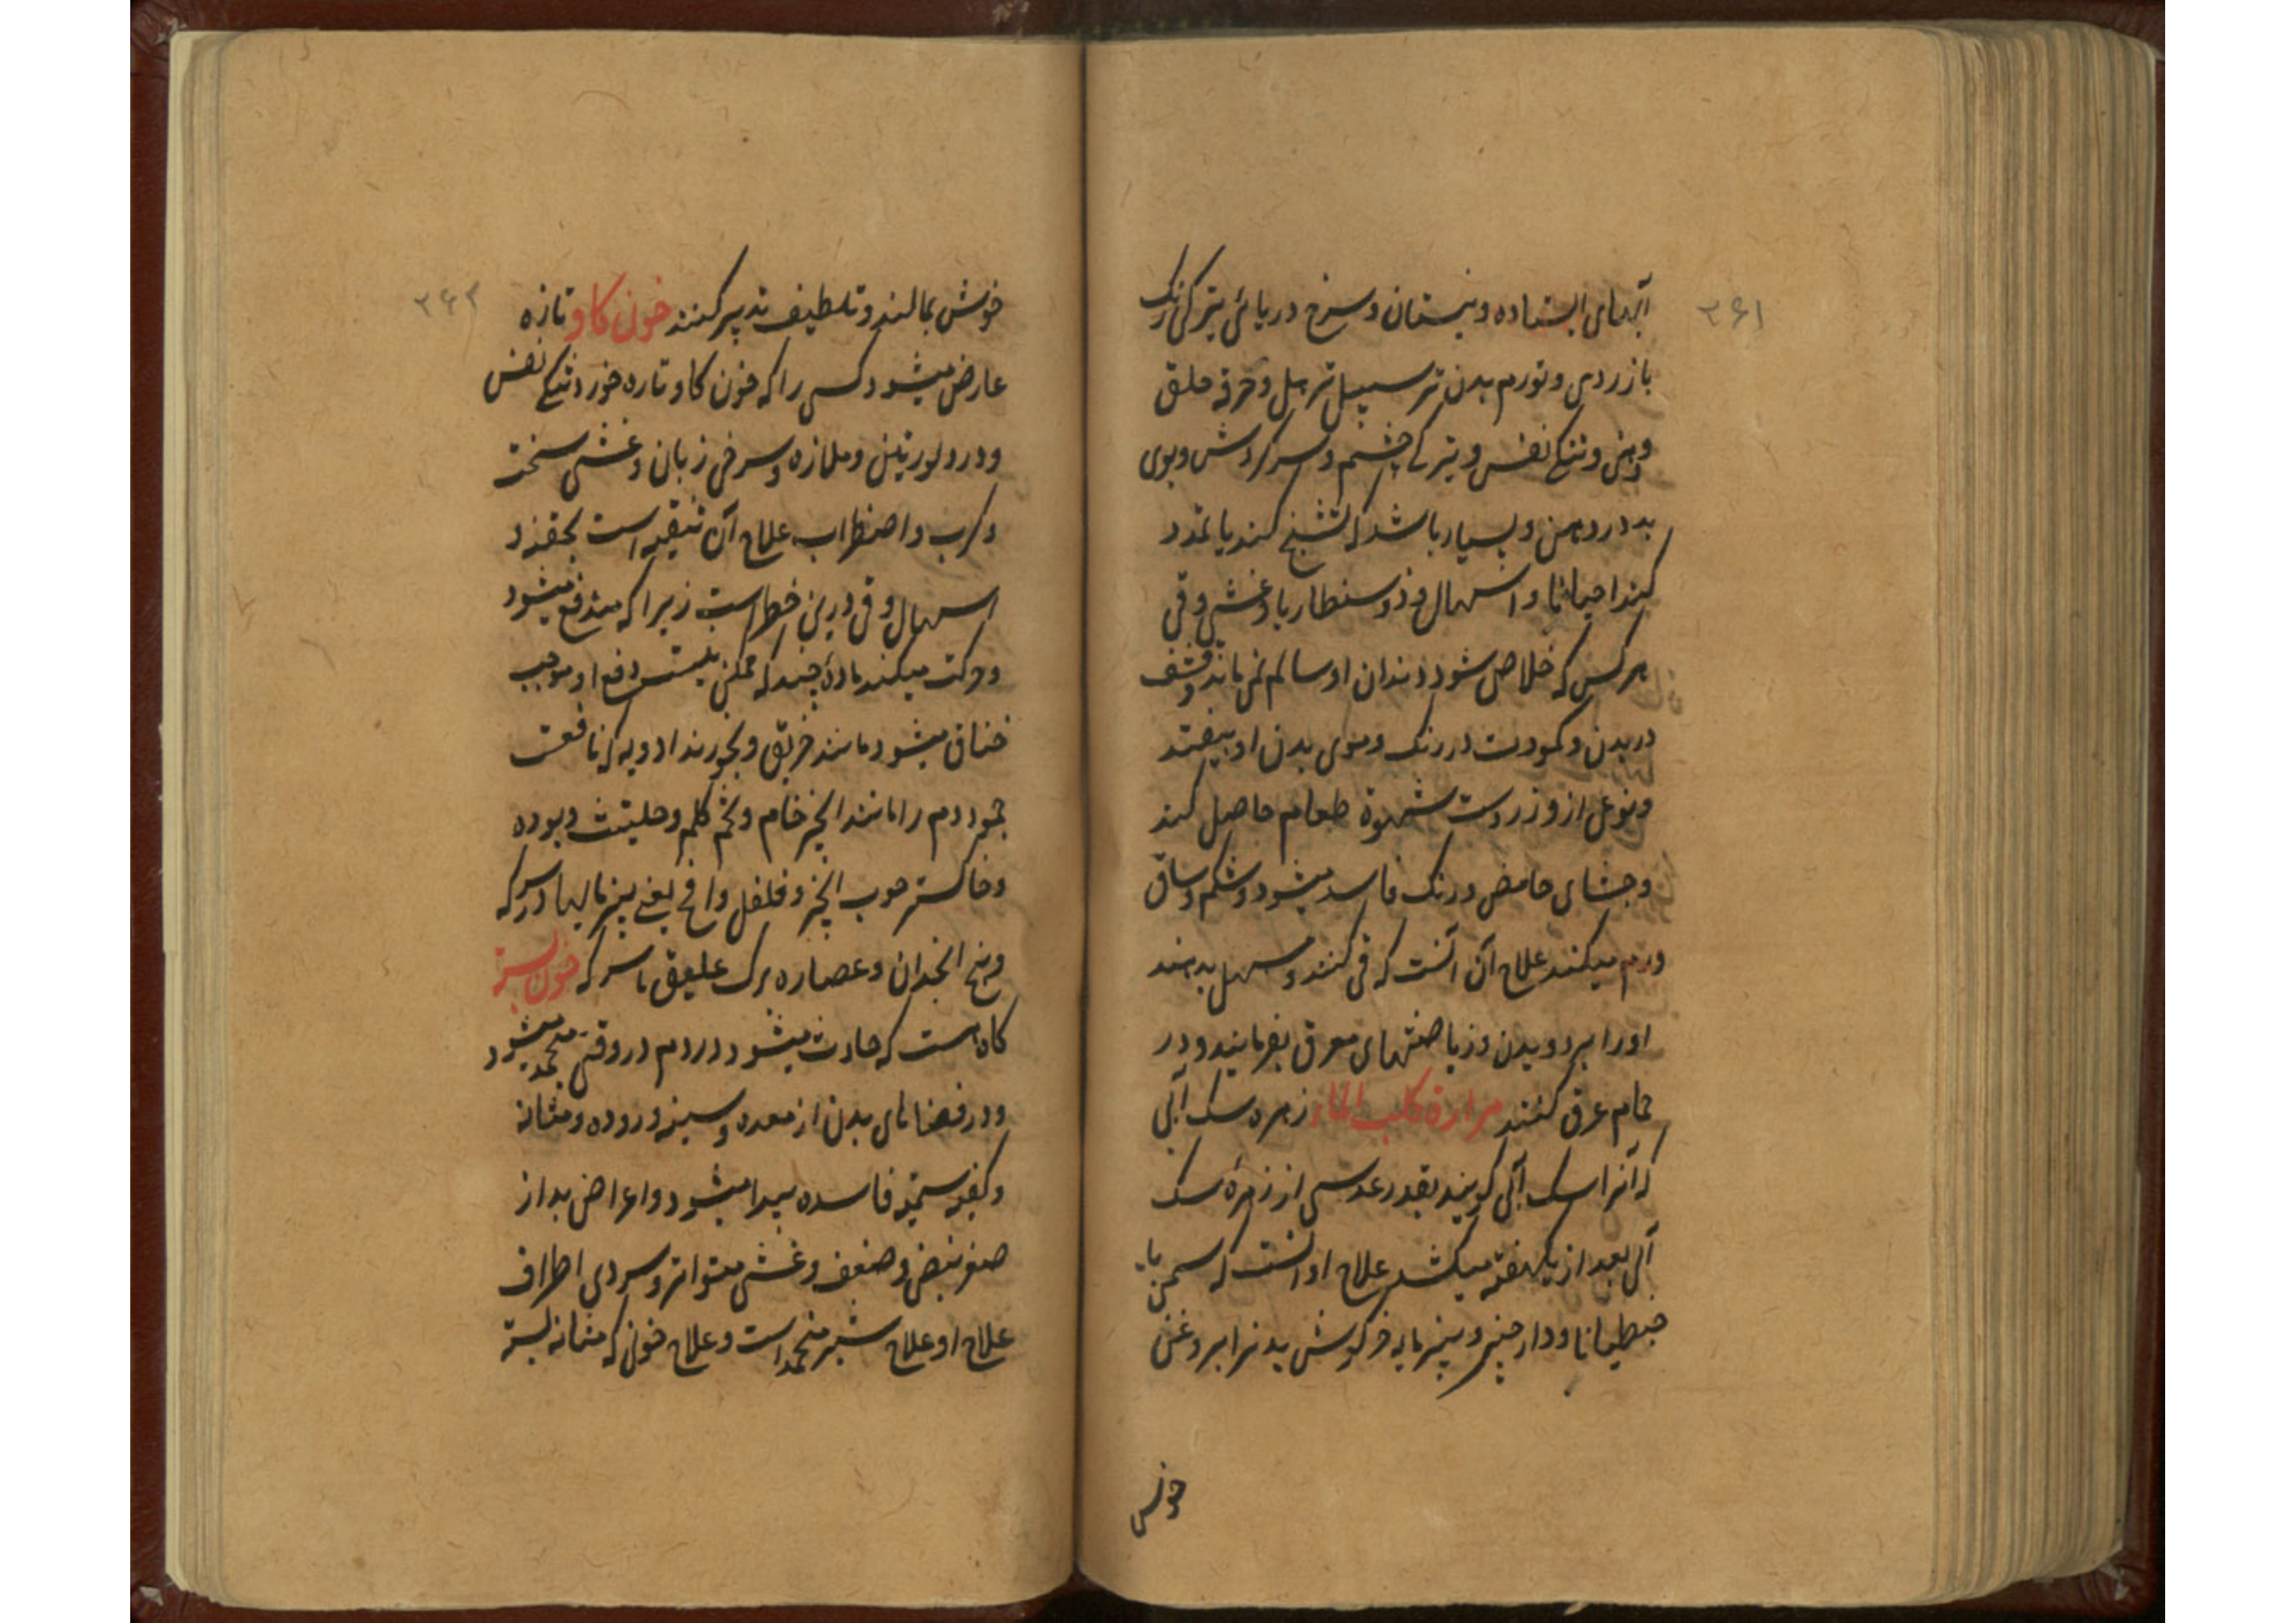 ۳۶۱
آبهای ایستاده و نیستان و سرخ دریائی تیرکی رنک
با زردی و تورم بدن بر سبیل ترهل و حرقه حلق
و دهن و تنکی نفس و تیرکی چشم و سرکردش و بوی
بد در دهن و بسیار باشد که تشنج کند یا تمدد
کند احیانا و اسهال و ذوسنطاریا و غشی و قی
هر کس که خلاص شود دندان او سالم نمی ماند و قشف
در بدن و کمودت در رنک و موی بدن او بیفتد
و نوعی ازو زردست شهوة طعام حاصل کند
و جشای حامض و رنک فاسد میشود و شکم و ساق
ورم میکند علاج آن آنست که قی کنند و مسهل بدهند
اورا بر دویدن و ریاضتهای معرق بفرمایند و در
حمام عرق کنند مرارة کلب الماء زهره سک آبی
که آنرا سک آبی کویند بقدر عدسی از زهرهٔ سک
آبی بعد از یکهفته میکشد علاج او آنست که سمن با
جنطیانا و دارچینی و پنیرمایه خرکوش بدهند ابر و غن
خوش
۳۶۲
خوش بمالند و تلطیف تدبیر کنند خون کاو تازه
عارض میشود کسی را که خون کاو تازه خورد تنکی نفس
و درد لوزتین و ملازه و سرخی زبان و غشی سخت
و کرب و اضطراب علاج آن تنقیه است بحقنه و
اسهال و قی درین خطر است زیرا که مندفع میشود
و حرکت میکند مادهٔ چند که ممکن نیست دفع او موجب
خناق میشود مانند خربق و بخورند ادویه که نافعست
جمود دم را مانند انجیر خام و تخم کلم و حلتیت و بوده
و خاکستر چوب انجیر و فلفل و انافح یعنی پنیرمایها در سرکه
و بیخ انجدان و عصاره برک علیق با سرکه خون بسته
کاه هست که حادث میشود در دم در وقتی منجمد میشود
و در فضاهای بدن از معده و سینه و روده و مثانه
و کیفیه سمیه فاسده پیدا میشود و اعراض بد از
صغر نبض و ضعف و غشی متواتر و سردی اطراف
علاج او علاج شیر منجمد است و علاج خونی که مثانه بسته